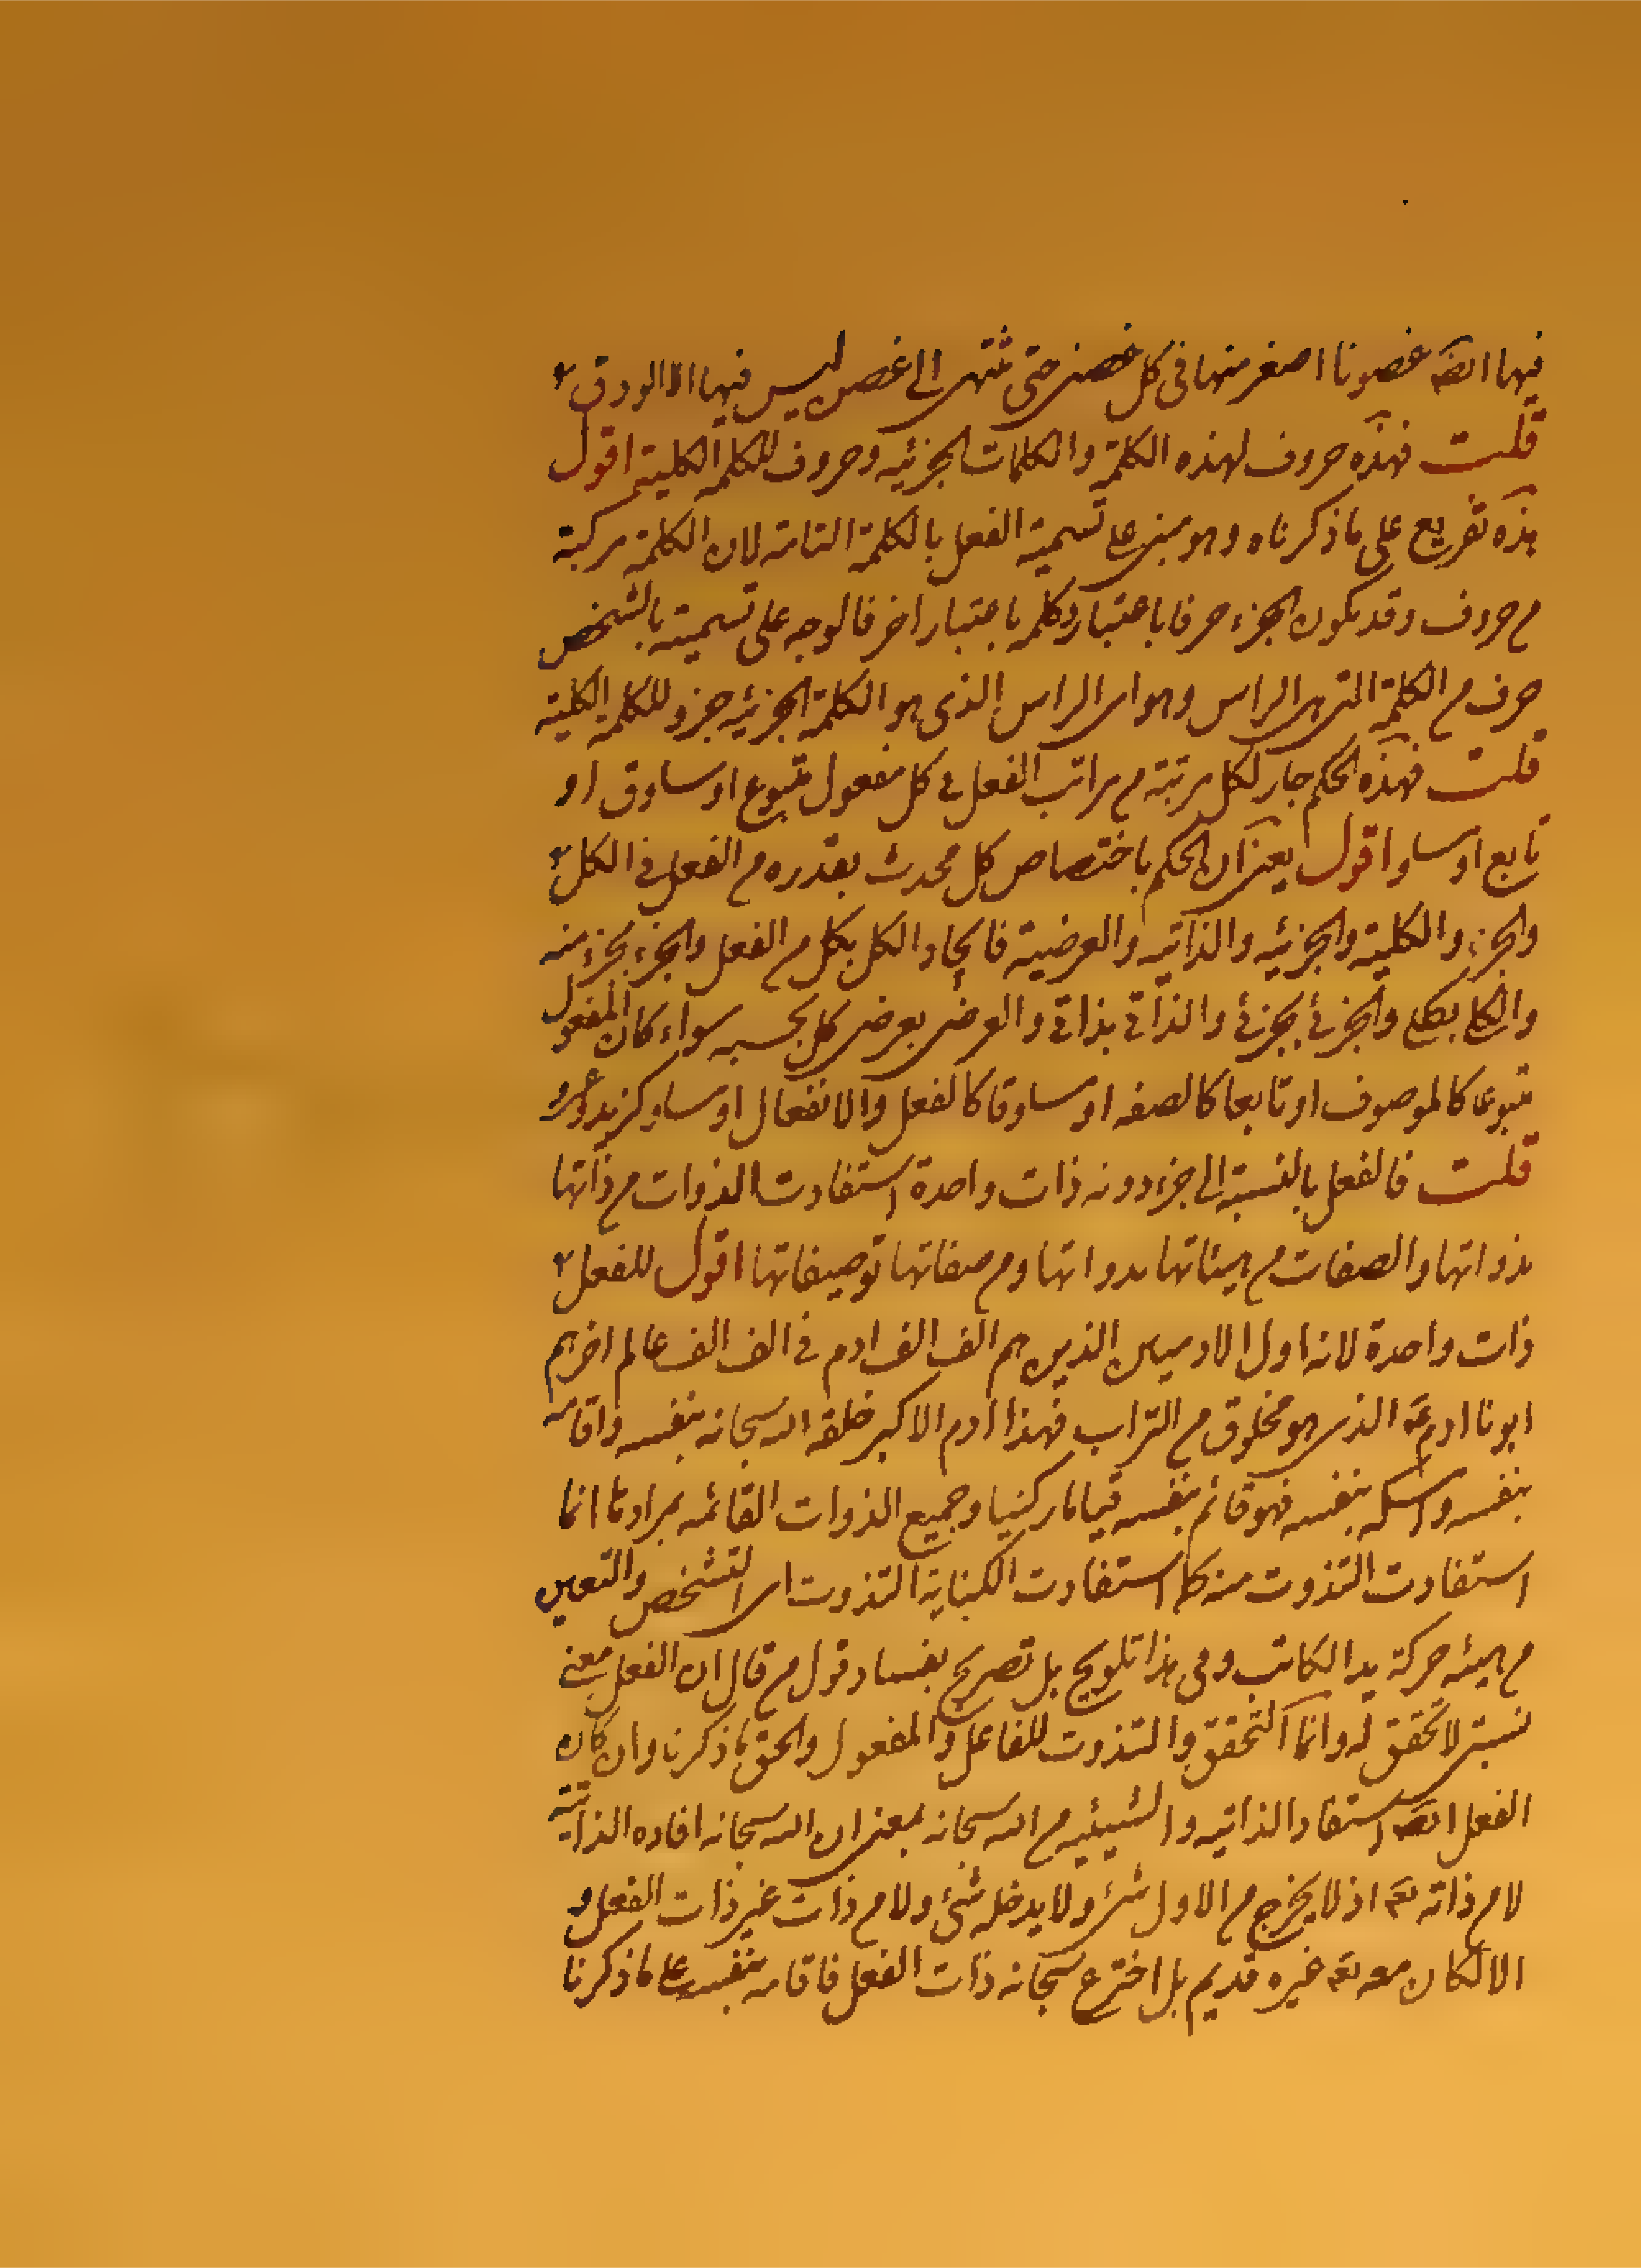 فيها ايضا غصونا اصغر منها فى كل غصن حتى تنتهى الى غصن ليس فيها الا الورق
قلت فهذه حروف لهذه الكلمة والكلمات الجزئيه وحروف للكلمة الكلية اقول
هذه تفريع على ما ذكرناه وهو مبنى على تسمية الفعل بالكلمة التامة لان الكلمة مركبة
من حروف وقد يكون الجزء حرفا باعتبار وكلمه باعتبار اخر فالوجه على تسميته بالشخص
حرف من الكلمة التى هى الراس وهو اى الراس الذى هو الكلمة الجزئيه جزو للكلمة الكليه
قلت فهذه الحكم جار لكل مرتبة من مراتب الفعل فى كل مفعول متبوع او مساوق او
تابع او مساو اقول يعنى ان الحكم باختصاص كل محدث بقدره من الفعل فى الكل
والجزء والكلية والجزئيه والذاتيه والعرضية فايجاد الكل بكل من الفعل والجزء بجزء منه
والكلى بكلى والجزئى بجزئى والذاتى بذاتى والعرضى بعرضى كل بحسبه سواء كان المفعول
متبوعا كالموصوف او تابعا كالصفه او مساوقا كالفعل والانفعال او مساو كزيد وعمرو
قلت فالفعل بالنسبة الى جزء دونه ذات واحدة استفادت الذوات من ذاتها
بذواتها والصفات من هيئاتها بذواتها ومن صفاتها توصيفاتها اقول للفعل
ذات واحدة لانه اول الادميين الذين هم الف الف ادم فى الف الف عالم اخرهم
ابونا ادم ع الذى هو مخلوق من التراب فهذا ادم الاكبر خلقه الله سبحانه بنفسه واقامه
بنفسه وامسكه بنفسه فهو قائم بنفسه قياما ركنيا وجميع الذوات القائمه بموادها انما
استفادت التذوت منه كما استفادت الكتابة التذوت اى التشخص والتعين
من هيئه حركة يد الكاتب وفى هذا تلويح بل تصريح بفساد قول من قال ان الفعل معنى
نسبى لا تحقق له وانما التحقق والتذوت للفاعل والمفعول والحق ما ذكرنا وان كان
الفعل ايضا استفاد الذاتيه والشيئيه من الله سبحانه بمعنى ان الله سبحانه افاده الذاتية
لا من ذاته تعالى اذ لا يخرج من الاول شىء ولا يدخله شئ ولا من ذات غير ذات الفعل و
الا لكان معه تعالى غيره قديم بل اخترع سبحانه ذات الفعل فاقامه بنفسه على ما ذكرنا